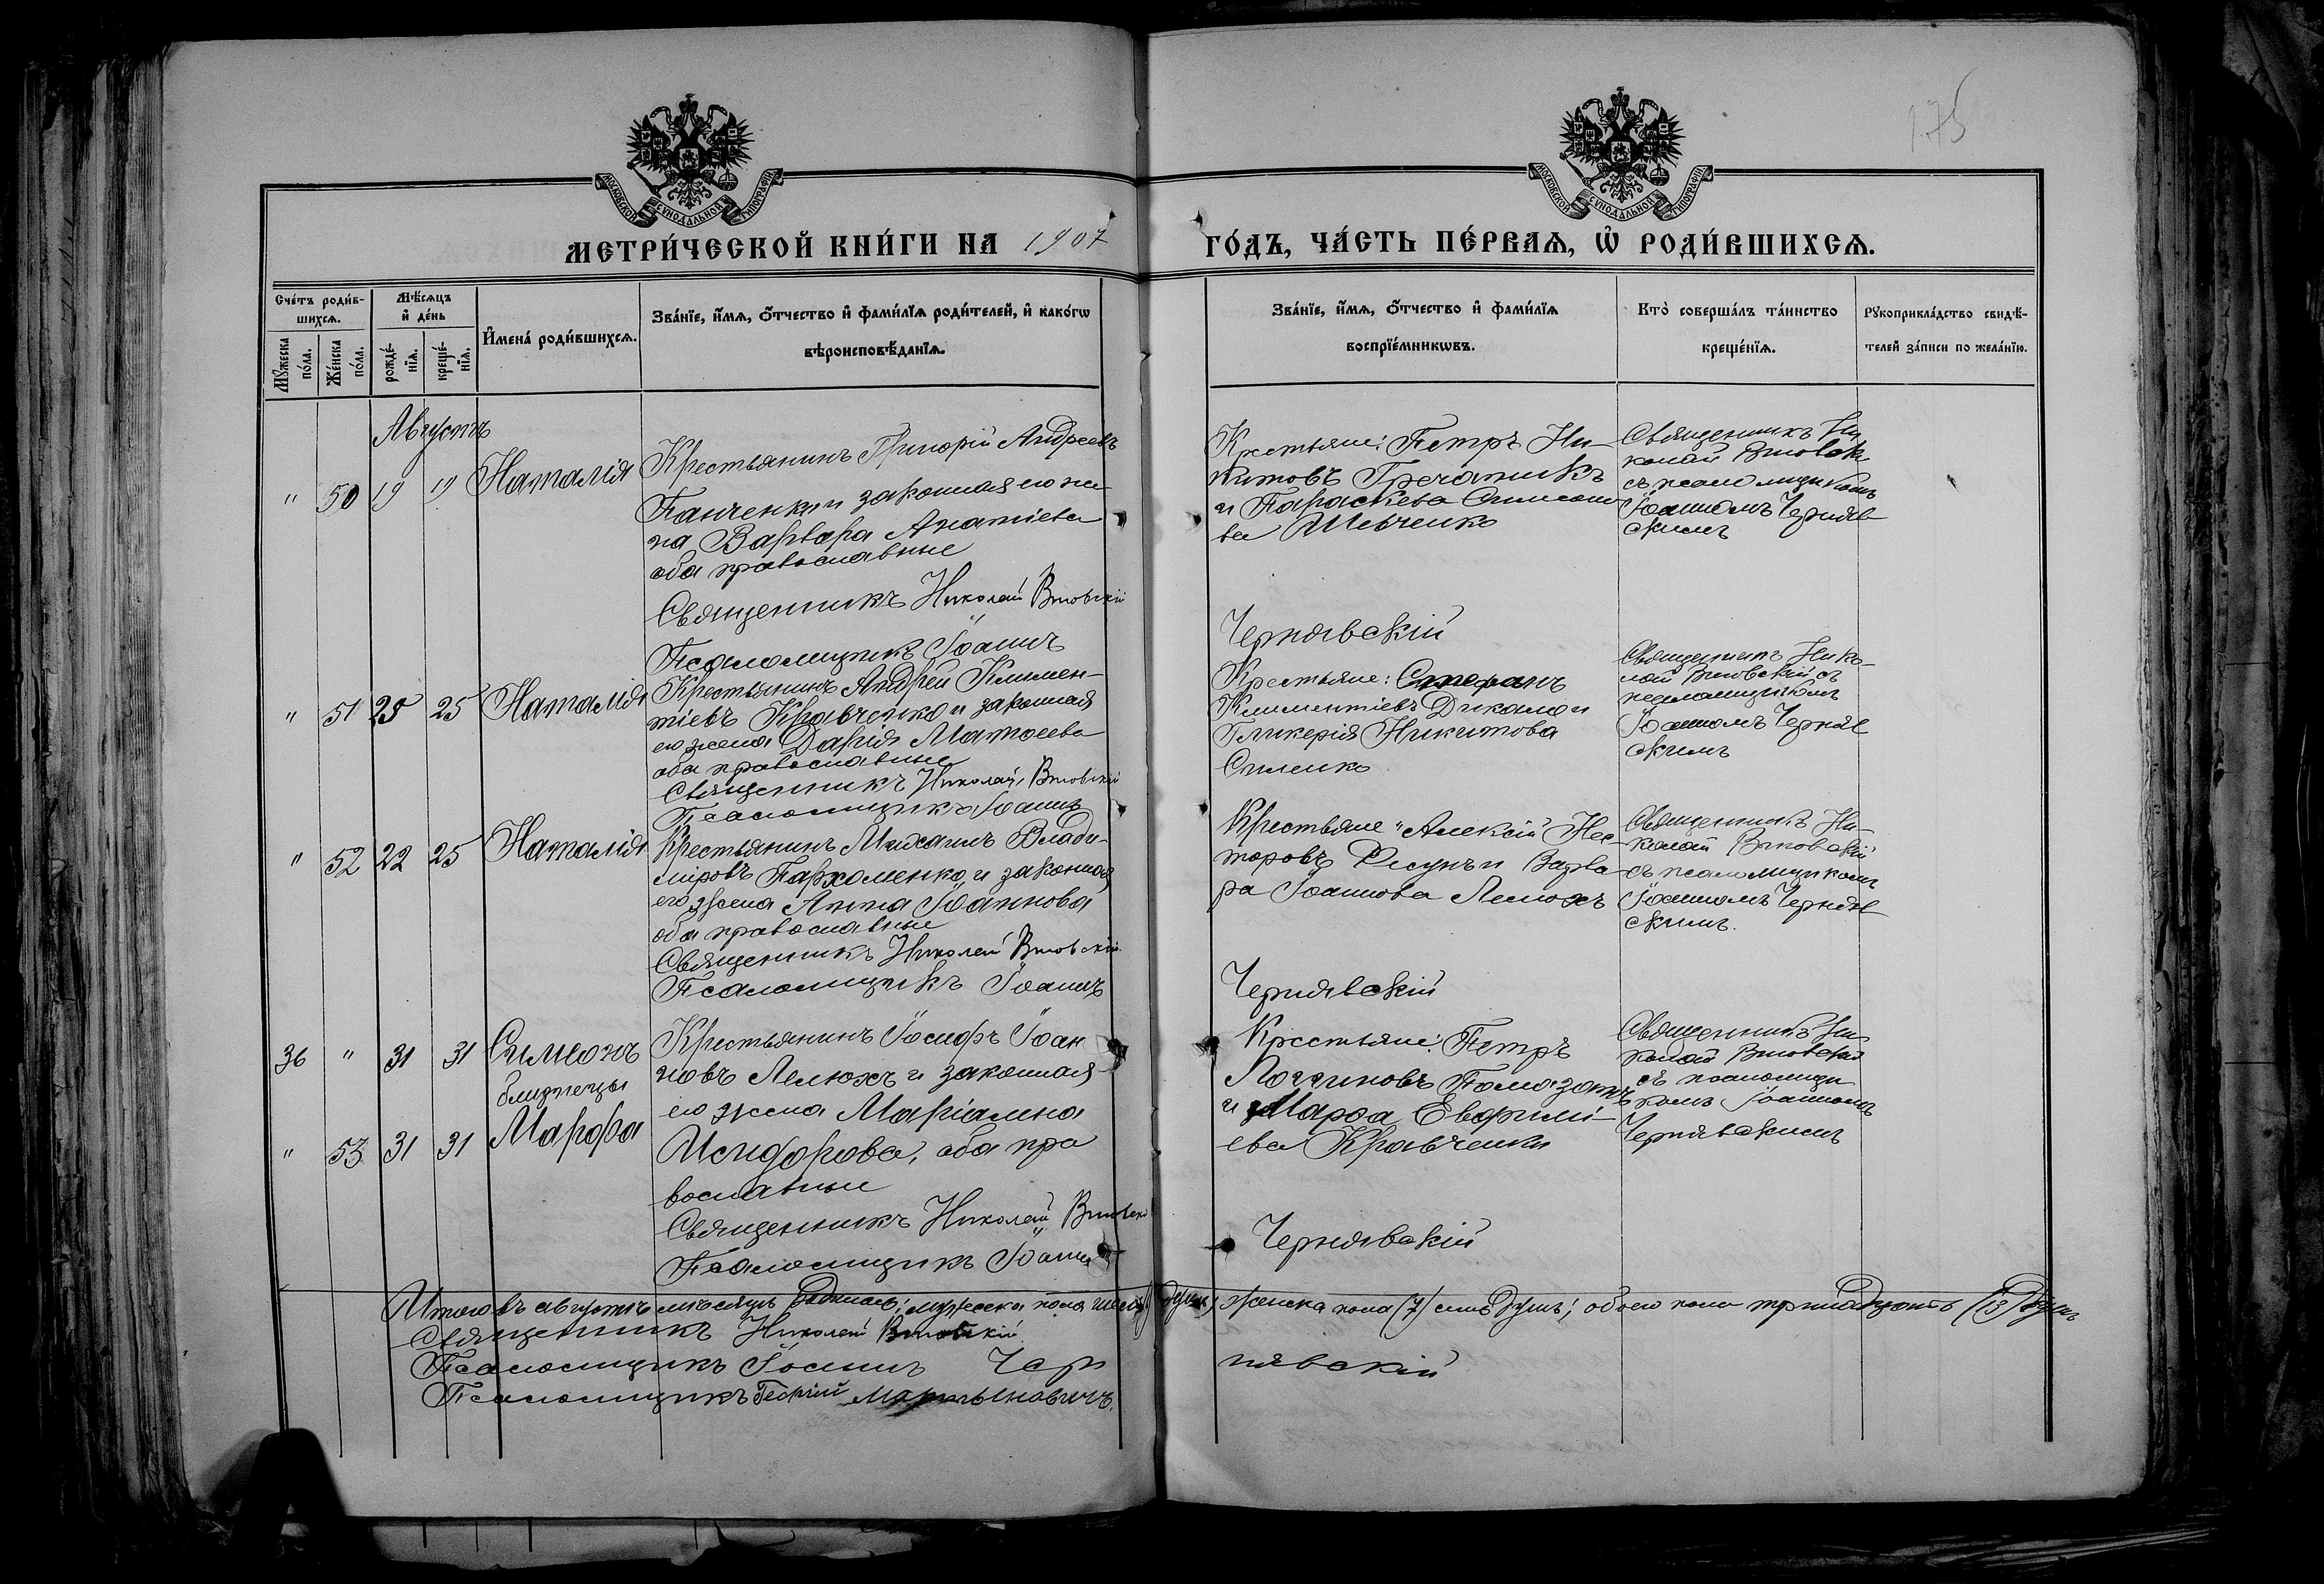 175
МОСКОВСКОЙ СѴНОДАЛЬНОЙ ТИПОГРАФІИ
МОСКОВСКОЙ СѴНОДАЛЬНОЙ ТИПОГРАФІИ
МЕТРИ́ЧЕСКОЙ КНИ́ГИ НА 1907
ГО́ДЪ, ЧА́СТЬ ПЕ́РВАѦ, Ѡ҆ РОДИ́ВШИХСѦ.
Сче́тъ роди́в-
шихсѧ.
Мꙋ́жеска по́ла.
Же́нска по́ла.
Мѣ́сѧцъ
и҆ де́нь
рожде́-
нїѧ.
креще́-
нїѧ.
И҆мена̀ роди́вшихсѧ.
Зва́нїе, и҆́мѧ, ѻ҆́тчество и҆ фами́лїѧ роди́телей, и҆ како́гѡ
вѣроисповѣ́данїѧ.
Зва́нїе, и҆́мѧ, ѻ҆́тчество и҆ фами́лїѧ
воспрїе́мникѡвъ.
Кто̀ соверша́лъ та́инство
креще́нїѧ.
Рꙋкоприкла́дство свидѣ́-
телей за́писи по жела́нїю.
Августъ
" 50 19 19 Наталія
Крестьянинъ Григорій Андреевъ
Панченко и законная его же
на Варвара Ипатіева
оба православные
Священникъ Николай
Псаломщикъ Іоаннъ
Крестьяне: Петръ Ни
китовъ Гречаникъ
и Параскева Симеоно
ва Шевченко
Чернявскій
Священникъ Ни
колай
съ псаломщикомъ
Іоанномъ Черняв
скимъ
" 51 25 25 Наталія
Крестьянинъ Андрей Климен-
тіевъ Кравченко и законная
его жена Дарія Матѳеева
оба православные
Священникъ Николай
Псаломщикъ Іоаннъ
Крестьяне: Стефанъ
Климентіевъ Дикало и
Гликерія Никитова
Силенко
Священникъ Нико-
лай съ
псаломщикомъ
Іоанномъ Черняв
скимъ
" 52 22 25 Наталія
Крестьянинъ Михаилъ Влади-
міровъ Пархоменко и законная
его жена Анна Іоаннова
оба православные
Священникъ Николай
Псаломщикъ Іоаннъ
Крестьяне: Алексій Нес-
торовъ и Варва
ра Іоаннова Лелюхъ
Чернявскій
Священникъ Ни-
колай
съ псаломщикомъ
Іоанномъ Черняв
скимъ.
36 " 31 31 Симеонъ
близнецы
" 53 31 31 Марфа
Крестьянинъ Іосифъ Іоан
новъ Лелюхъ и законная
его жена Маріамна
Исидорова, оба пра
вославные
Священникъ Николай
Псаломщикъ Іоаннъ
Крестьяне: Петръ
Логгиновъ Помазанъ
и Марѳа Евфимі-
ева Кравченко
Чернявскій
Священникъ Ни
колай
съ псаломщи
комъ Іоанномъ
Чернявскимъ
Итого въ августѣ мѣсяцѣ родилось: мужеска пола шесть душъ, женска пола (7) семь душъ; обоего пола тринадцать (13) душъ
Священникъ Николай
Псаломщикъ Іоаннъ Чер нявскій
Псаломщикъ Георгій Мартыновичъ.